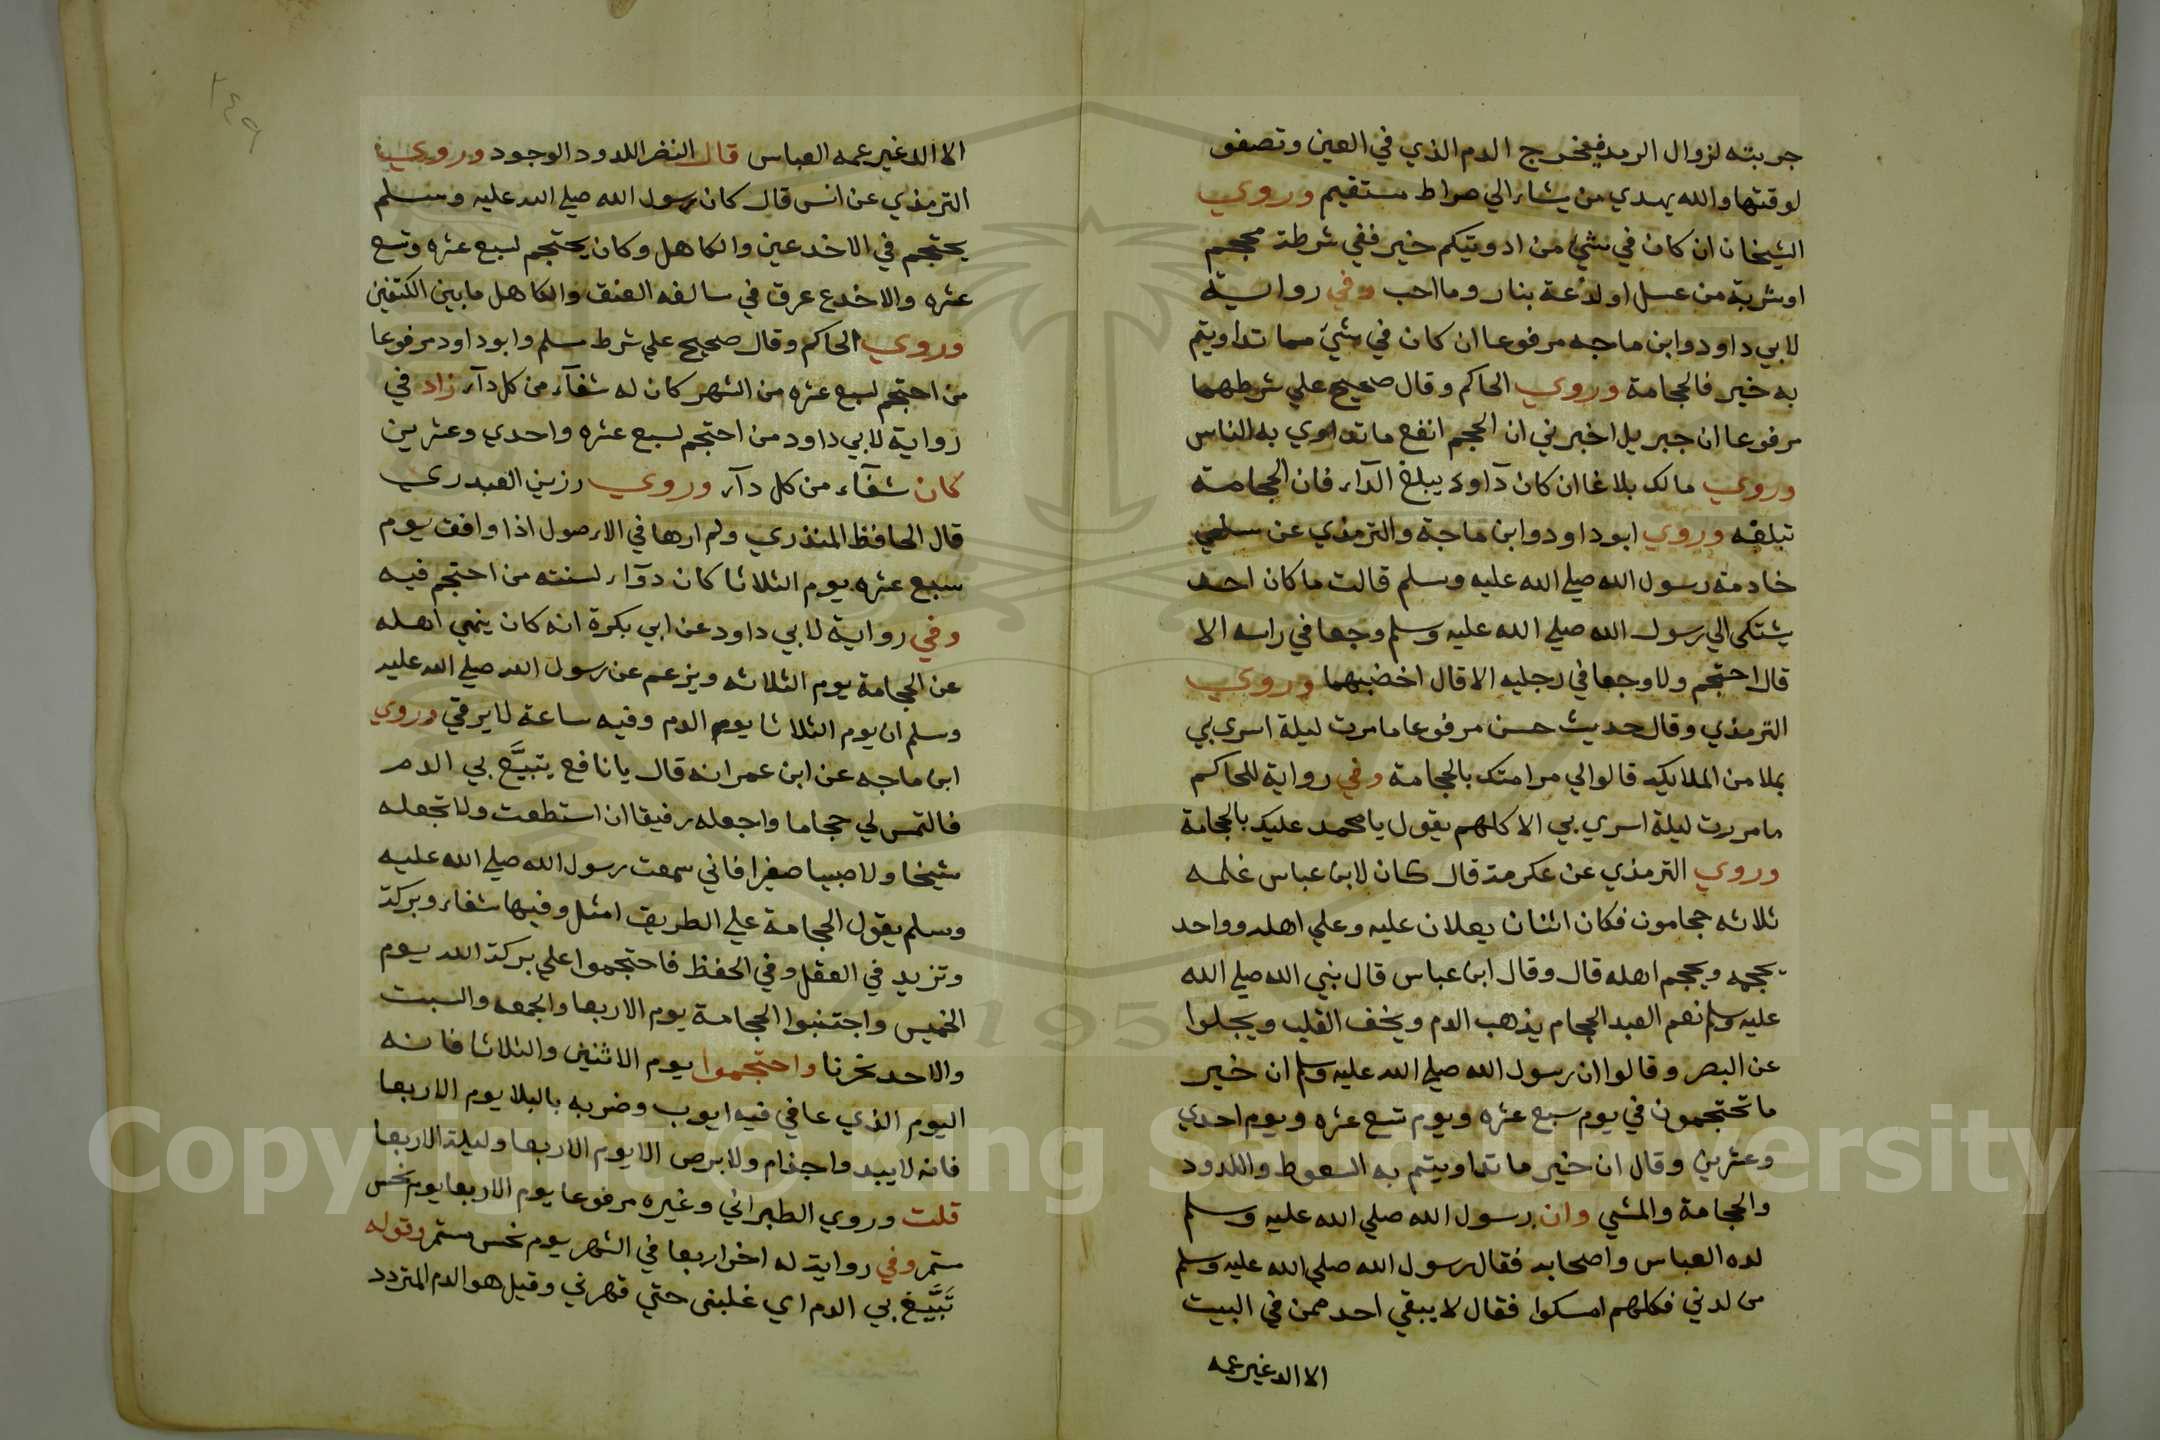 جربته لزوال الرمد فيخرج الدم الذي في العين وتصفو
لوقتها والله يهدي من يشاء الي صراط مستقيم وروي
الشيخان ان كان في شيء من ادويتكم خير ففي شرطة محجم
او شربة من عسل او لذعة بنار وما احب وفي رواية
لابي داود وابن ماجه مرفوعا ان كان في شيء مما تداويتم
به خير فالحجامة وروي الحاكم وقال صحيح علي شرطهما
مرفوعا ان جبريل اخبرني ان الحجم انفع ما تداوي به الناس
وروي مالك بلاغا ان كان دآء يبلغ الدآء فان الحجامة
تبلغه وروي ابو داود وابن ماجة والترمذي عن سلمي
خادمة رسول الله صلي الله عليه وسلم قالت ما كان احد
يشتكي الي رسول الله صلي الله عليه وسلم وجعا في راسه الا
قال احتجم ولا وجعا في رجليه الا قال اخضبهما وروي
الترمذي وقال حديث حسن مرفوعا ما مررت ليلة اسري بي
بملا من الملايكة قالوا لي مر امتك بالحجامة وفي رواية للحاكم
ما مررت ليلة اسري بي الا كلهم يقول يا محمد عليك بالحجامة
وروي الترمذي عن عكرمة قال كان لابن عباس غلمه
ثلاثه حجامون فكان اثنان يعلان عليه وعلي اهله وواحد
يحجمه ويحجم اهله قال وقال ابن عباس قال نبي الله صلي الله
عليه وسلم نعم العبد الحجام يذهب الدم ويخف القلب ويجلوا
عن البصر وقالوا ان رسول الله صلي الله عليه وسلم ان خير
ما تحتجمون في يوم سبع عشره ويوم تسع عشره ويوم احدي
وعشرين وقال ان خير ما تداويتم به السعوط واللدود
والحجامة والمشي وان رسول الله صلي الله عليه وسلم
لده العباس واصحابه فقال رسول الله صلي الله عليه وسلم
من لدني فكلهم امسكوا فقال لا يبقي احد ممن في البيت
الا الد غير عمه
٢٤٩
الا الد غير عمه العباس قال النضر اللدود الوجود وروي
الترمذي عن انس قال كان رسول الله صلي الله عليه وسلم
يحتجم في الاخدعين والكاهل وكان يحتجم لسبع عشره وتسع
عشره والاخدع عرق في سالفه العنق والكاهل ما بين الكتفين
وروي الحاكم وقال صحيح علي شرط مسلم وابو داود مرفوعا
من احتجم لسبع عشره من الشهر كان له شفآء من كل دآء زاد في
رواية لابي داود من احتجم لسبع عشره واحدي وعشرين
كان شفآء من كل دآء وروي رزين العبدري
قال الحافظ المنذري ولم ارها في الاصول اذا وافق يوم
سبع عشره يوم الثلاثا كان دوآء لسنته من احتجم فيه
وفي رواية لابي داود عن ابي بكرة انه كان ينهي اهله
عن الحجامة يوم الثلاثه ويزعم عن رسول الله صلي الله عليه
وسلم ان يوم الثلاثا يوم الدم وفيه ساعة لا يرقي وروي
ابن ماجه عن ابن عمر انه قال يا نافع يتبيَّغ بي الدم
فالتمس لي حجاما واجعله رفيقا ان استطعت ولا تجعله
شيخا ولا صبيا صغيرا فاني سمعت رسول الله صلي الله عليه
وسلم يقول الحجامة علي الطريق امثل وفيها شفاء وبركة
وتزيد في العقل وفي الحفظ فاحتجموا علي بركة الله يوم
الخميس واجتنبوا الحجامة يوم الاربعا والجمعه والسبت
والاحد تحرنا واحتجموا يوم الاثنين والثلاثا فانه
اليوم الذي عافي فيه ايوب وضربه بالبلا يوم الاربعا
فانه لا يبدوا جذام ولا برص الا يوم الاربعا وليلة الاربعا
قلت وروي الطبراني وغيره مرفوعا يوم الاربعا يوم نحس
مستمر وفي رواية له اخر اربعا في الشهر يوم نحس مستمر وقوله
تَبَيَّغ بي الدم اي غلبني حتي قهرني وقيل هو الدم المتردد
Copyright © King Saud University
195